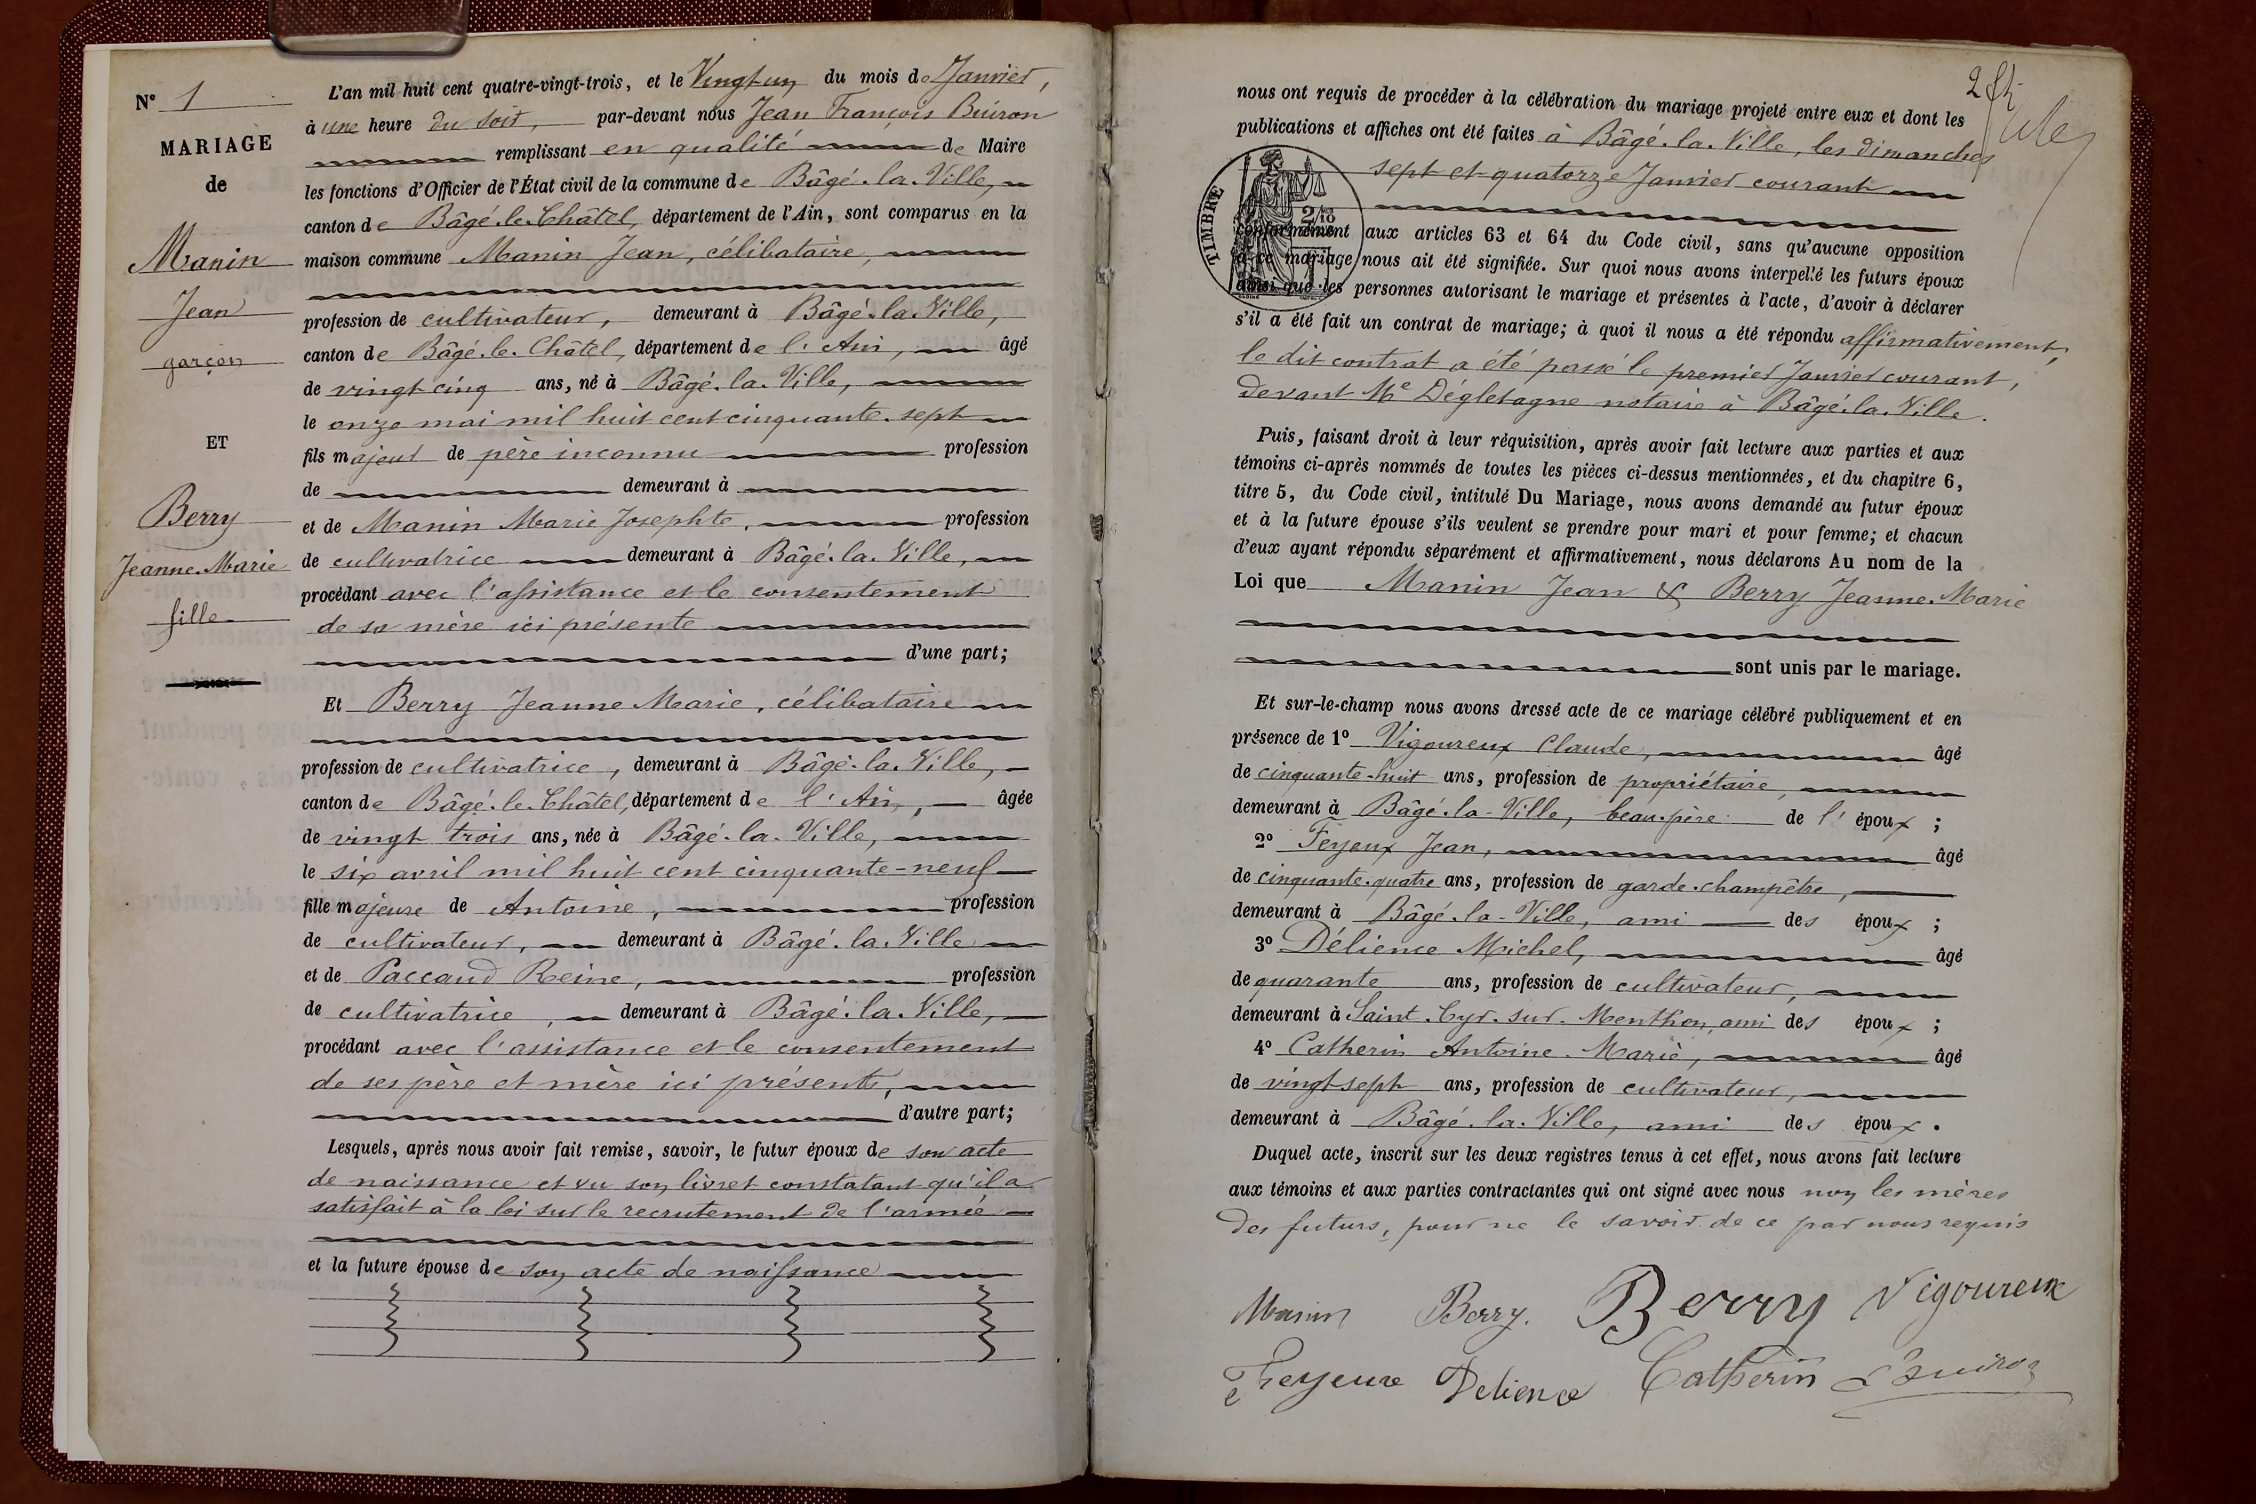 N° 1
MARIAGE
de
Manin
Jean
garçon
ET
Berry
Jeanne-Marie
fille
L'an mil huit cent quatre-vingt-trois, et le Vingt un du mois de Janvier,
à une heure du soir, par-devant nous Jean François Buiron
remplissant en qualité de Maire
les fonctions d'Officier de l'État civil de la commune de Bâgé-la-Ville,
canton de Bâgé-le-Châtel, département de l'Ain, sont comparus en la
maison commune Manin Jean, célibataire,
profession de cultivateur, demeurant à Bâgé-la-Ville,
canton de Bâgé-le-Châtel, département de l'Ain, âgé
de vingt cinq ans, né à Bâgé-la-Ville,
le onze mai mil huit cent cinquante-sept
fils majeur de père inconnu profession
de demeurant à
et de Manin Marie Josephte, profession
de cultivatrice demeurant à Bâgé-la-Ville,
procédant avec l'assistance et le consentement
de sa mère ici présente
d'une part;
Et Berry Jeanne Marie, célibataire
profession de cultivatrice, demeurant à Bâgé-la-Ville,
canton de Bâgé-le-Châtel, département de l'Ain, âgée
de vingt trois ans, née à Bâgé-la-Ville,
le six avril mil huit cent cinquante-neuf
fille majeure de Antoine, profession
de cultivateur, demeurant à Bâgé-la-Ville
et de Paccaud Reine, profession
de cultivatrice, demeurant à Bâgé-la-Ville,
procédant avec l'assistance et le consentement
de ses père et mère ici présents,
d'autre part;
Lesquels, après nous avoir fait remise, savoir, le futur époux de son acte
de naissance et vu son livret constatant qu'il a
satisfait à la loi sur le recrutement de l'armée
et la future épouse de son acte de naissance
2
nous ont requis de procéder à la célébration du mariage projeté entre eux et dont les
publications et affiches ont été faites à Bâgé-la-Ville, les dimanches
sept et quatorze Janvier courant
TIMBRE
2/10
conformément aux articles 63 et 64 du Code civil, sans qu'aucune opposition
à ce mariage nous ait été signifiée. Sur quoi nous avons interpellé les futurs époux
ainsi que les personnes autorisant le mariage et présentes à l'acte, d'avoir à déclarer
s'il a été fait un contrat de mariage; à quoi il nous a été répondu affirmativement,
le dit contrat a été passé le premier Janvier courant,
devant Me Dégletagne notaire à Bâgé-la-Ville.
Puis, faisant droit à leur réquisition, après avoir fait lecture aux parties et aux
témoins ci-après nommés de toutes les pièces ci-dessus mentionnées, et du chapitre 6,
titre 5, du Code civil, intitulé Du Mariage, nous avons demandé au futur époux
et à la future épouse s'ils veulent se prendre pour mari et pour femme; et chacun
d'eux ayant répondu séparément et affirmativement, nous déclarons Au nom de la
Loi que Manin Jean & Berry Jeanne-Marie
sont unis par le mariage.
Et sur-le-champ nous avons dressé acte de ce mariage célébré publiquement et en
présence de 1° Vigoureux Claude, âgé
de cinquante-huit ans, profession de propriétaire,
demeurant à Bâgé-la-Ville, beau-père de l'époux;
2° Feyeux Jean, âgé
de cinquante-quatre ans, profession de garde-champêtre,
demeurant à Bâgé-la-Ville, ami des époux;
3° Délience Michel, âgé
de quarante ans, profession de cultivateur,
demeurant à Saint-Cyr-sur-Menthon, ami des époux;
4° Catherin Antoine-Marie, âgé
de vingt-sept ans, profession de cultivateur,
demeurant à Bâgé-la-Ville, ami des époux.
Duquel acte, inscrit sur les deux registres tenus à cet effet, nous avons fait lecture
aux témoins et aux parties contractantes qui ont signé avec nous non les mères
des futurs, pour ne le savoir de ce par nous requis
Manin Berry. Berry Vigoureux
Feyeux Delience Catherin Buiron